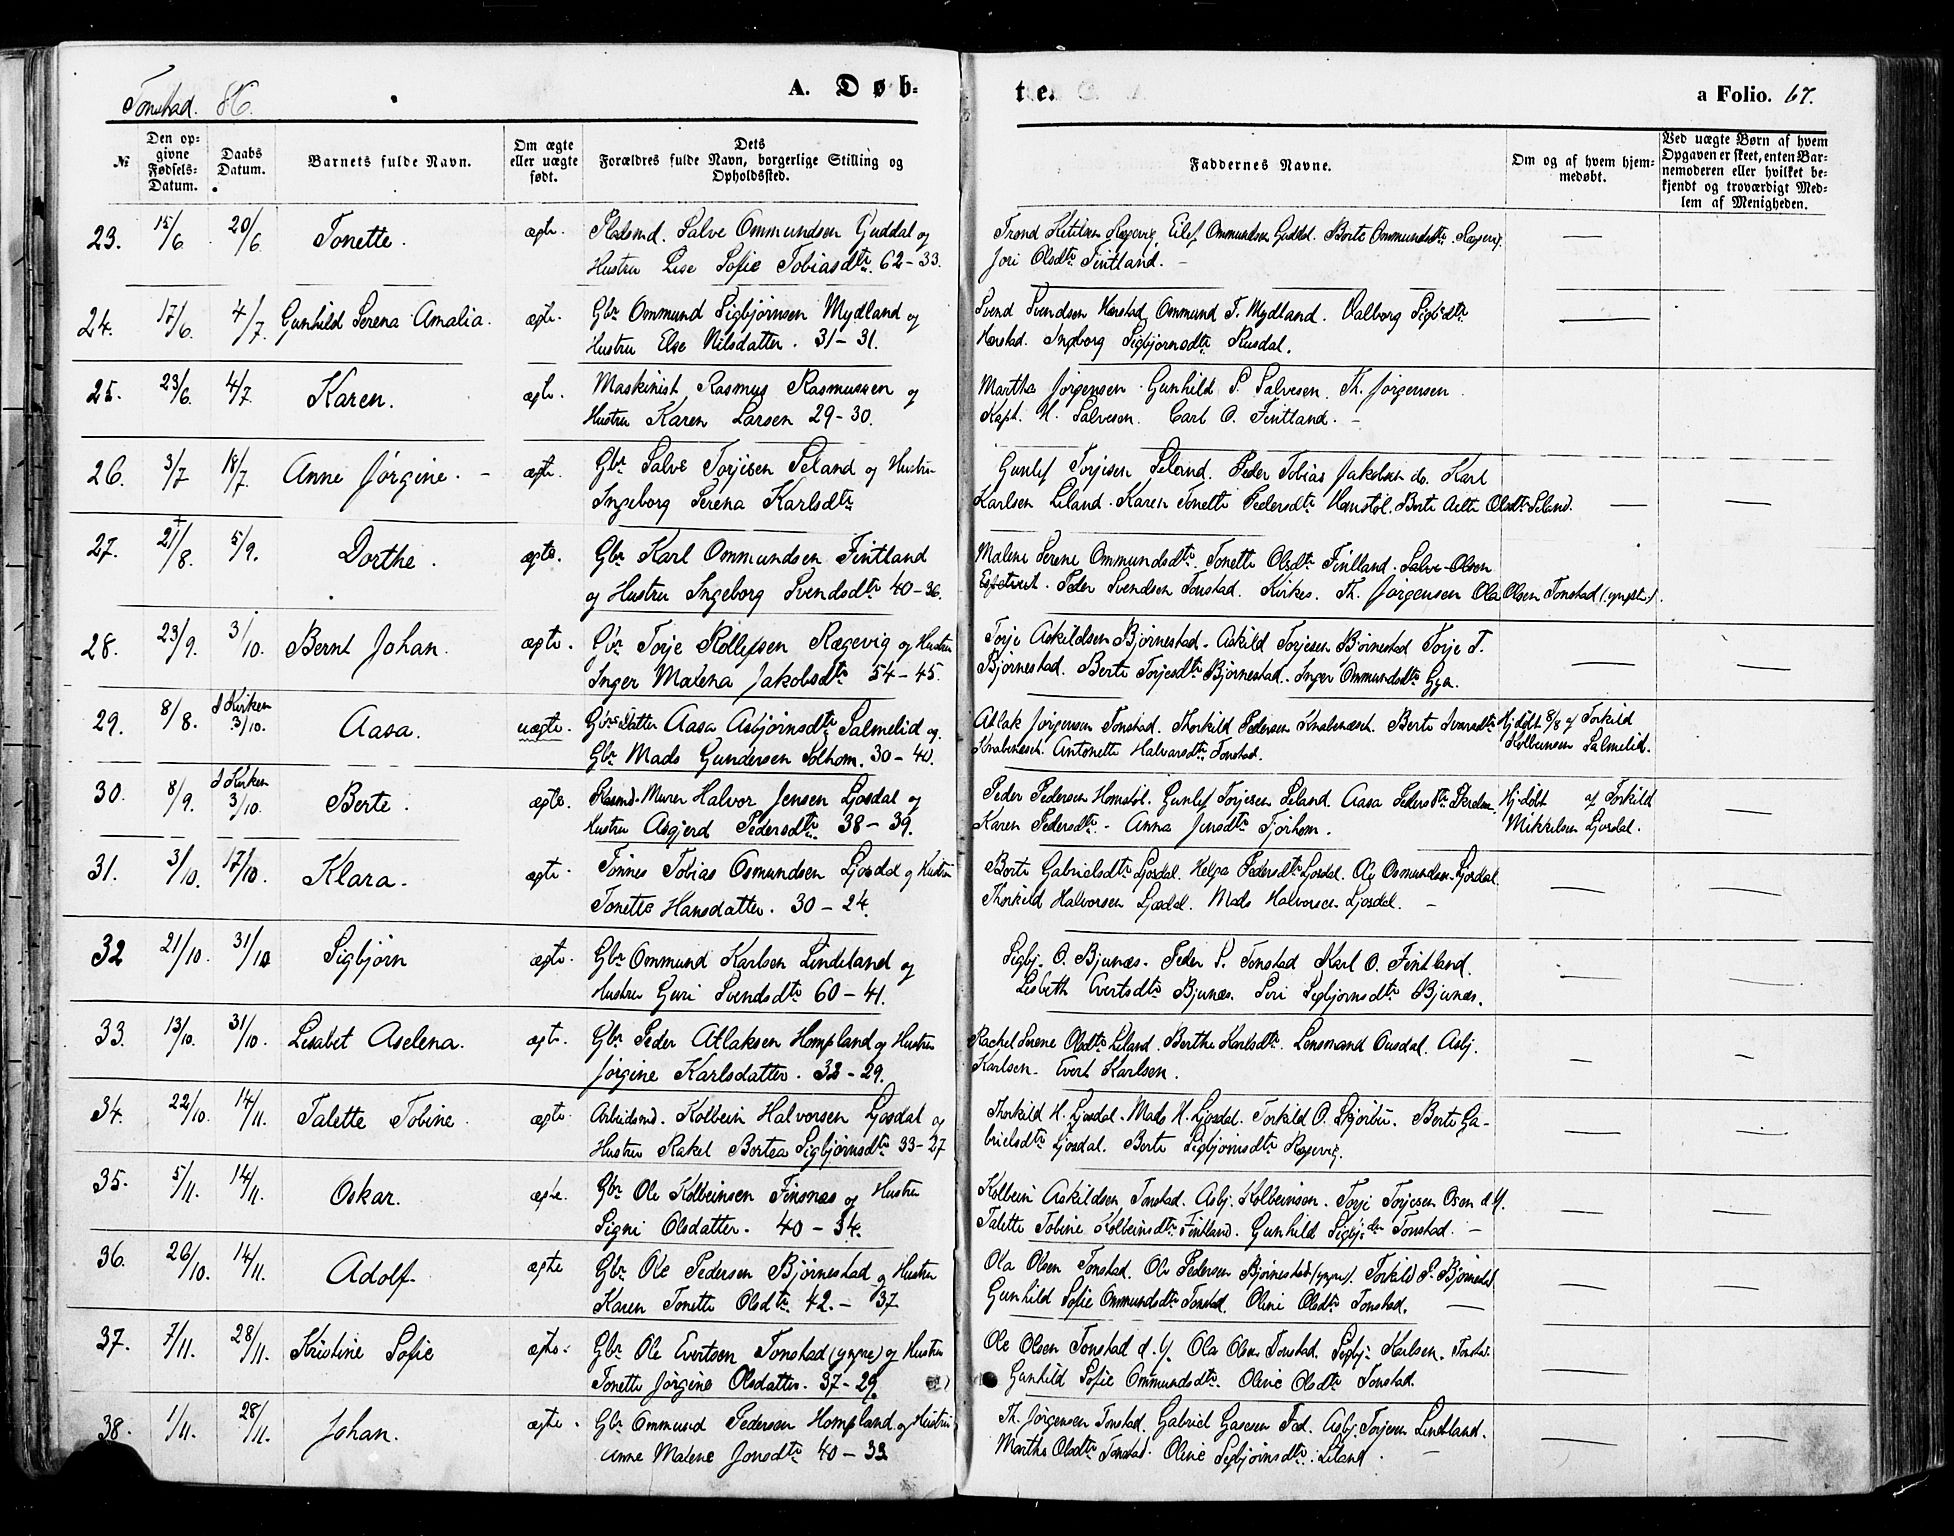 Tonstad. 86.
A. Døb-
te.
a Folio. 67.
№
Den op-
givne
Fødsels-
Datum.
Daabs
Datum.
Barnets fulde Navn.
Om ægte
eller uægte
født.
Dets
Forældres fulde Navn, borgerlige Stilling og
Opholdssted.
Faddernes Navne.
Om og af hvem hjem-
medøbt.
Ved uægte Børn af hvem
Opgaven er skeet, enten Bar-
nemoderen eller hvilket be-
kjendt og troværdigt Med-
lem af Menigheden.
23. 15/6 20/6 Tonette. ægte. Pladsmd. Salve Ommundsen Guddal og
Hustru Lise Sofie Tobiasdtr. 62-33.
Trond Ketilsen Røgevig. Eilef Ommundsen Guddal. Berte Ommundsdtr.
Jori Olsdtr Fintland. —
24. 17/6. 4/7. Gunhild Serena Amalia. ægte. Gbr Ommund Sigbjørnsen Mydland og
Hustru Else Nilsdatter. 31-31.
Svend Svendsen Ommund T. Mydland. Valborg
Ingborg Sigbjørnsdtr Rusdal.
25. 23/6. 4/7. Karen. ægte. Maskinist Rasmus Rasmussen og
Hustru Karen Larsen 29-30.
Marthe Jørgensen. Gunhild S. Salvesen. Th. Jørgensen.
Kapt. H. Salvesen. Carl O. Fintland. —
26. 3/7 18/7. Anne Jørgine. — ægte. Gbr Salve Torjisen Seland og Hustru
Ingeborg Serena Karlsdtr
Gunlef Torjisen Seland. Peder Tobias Jakobsen do. Karl
Karlsen Liland. Karen Tonette Pedersdtr Homstøl. Berte Olsdtr Seland.
27. 21/8. 5/9. Dorthe. ægte. Gbr Karl Ommundsen Fintland
og Hustru Ingeborg Svendsdtr 40-36.
Malene Serene Ommundsdtr. Tonette Olsdtr Fintland. Salve Olsen
Peder Svendsen Tonstad. Kirkes. Th. Jørgensen Ola Olsen Tonstad
28. 23/9. 3/10. Bernt Johan. ægte. Gbr Torje Rollefsen Røgevig og Hustru
Inger Malena Jakobsdtr 54-45.
Torje Askildsen Bjørnestad. Askild Torjesen Bjørnestad Torje T.
Bjørnestad. Berte Torjesdtr Bjørnestad. Inger Ommundsdtr Gya.
29. 8/8. I Kirken
3/10. Aasa. uægte. Gbrs Datter Aasa Asbjørnsdtr Salmelid og
Gbr. Mads Gundersen Solhom. 30-40.
Atlak Jørgensen Tonstad. Thorkild Pedersen Knabenæsch. Berte Ivarsdtr
Knabenæsch. Antonette Halvarsdtr Tonstad.
Hj.døbt 8/8 af Torkild
Kolbeinsen Salmelid.
30. 8/9. I Kirken
3/10. Berte. ægte. Murer Halvor Jensen Ljosdal og
Hustru Asgjerd Pedersdtr 38-39.
Peder Pedersen Homstøl. Gunlef Torjesen Seland. Aasa Pedersdtr
Karen Pedersdtr. Anna Jensdtr Tjørhom.
Hj.døbt af Torkild
Mikkelsen Ljosdal.
31. 3/10. 17/10. Klara. ægte. Tønnes Tobias Osmundsen Ljosdal og Hustru
Tonette Hansdatter. 30-24.
Berte Gabrielsdtr Ljosdal. Helga Pedersdtr Ljosdal. Ole Osmundsen Ljosdal.
Thorkild Halvorsen Ljosdal. Mads Halvorsen Ljosdal. —
32 21/10. 31/10 Sigbjørn ægte. Gbr Ommund Karlsen Lindeland og
Hustru Guri Svendsdtr 60-41.
Sigbj. O. Bjunæs. Peder S. Tonstad Karl O. Fintland.
Lisbeth Evertsdtr Bjunæs. Siri Sigbjørnsdtr Bjunæs.
33. 13/10. 31/10. Lisabet Aselena. ægte. Gbr Peder Atlaksen Hompland og Hustru
Jørgine Karlsdatter. 32-29.
Rachel Serene Olsdtr Liland. Berthe Karlsdtr. Lensmand Ousdal. Asbj.
Karlsen. Evert Karlsen.
34. 22/10. 14/11. Talette Tobine. ægte. Arbeidsmd. Kolbein Halvorsen Ljosdal og
Hustru Rakel Bertea Sigbjørnsdtr 33-27
Thorkild H. Ljosdal. Mads H. Ljosdal. Torkild O. Skjerbu. Berte Ga-
brielsdtr Ljosdal. Berte Sigbjørnsdtr Røgevig.
35. 5/11. 14/11. Oskar. ægte. Gbr Ole Kolbeinsen Finsnæs og Hustru
Signi Olsdatter. 40-34.
Kolbein Askildsen Tonstad. Asbj. Kolbeinsen. Torje Torjesen Osen d.Y.
Talette Tobine Kolbeinsdtr Fintland. Gunhild Sigbj.dtr Tonstad. —
36. 26/10. 14/11. Adolf. ægte Gbr Ole Pedersen Bjørnestad og Hustru
Karen Tonette Olsdtr 42.-37
Ola Olsen Tonstad. Ole Pedersen Bjørnestad (yngre). Torkild P. Bjørnestad.
Gunhild Sofie Ommundsdtr Tonstad. Oline Olsdtr Tonstad.
37. 7/11. 28/11. Kristine Sofie ægte. Gbr Ole Evertsen Tonstad (yngre) og Hustru
Tonette Jørgine Olsdatter. 37-29.
Ole Olsen Tonstad d.Y. Ola Olsen Tonstad. Sigbj. Karlsen. Tonstad.
Gunhild Sofie Ommundsdtr. Oline Olsdtr Tonstad.
38. 1/11. 28/11. Johan. ægte. Gbr Ommund Pedersen Hompland og Hustru
Anne Malene Jonsdtr 40-33
Th. Jørgensen Tonstad. Gabriel Gasesen Fed. Asbj. Torjesen Lindland.
Marthe Olsdtr Tonstad. Oline Sigbjørnsdtr. Liland.